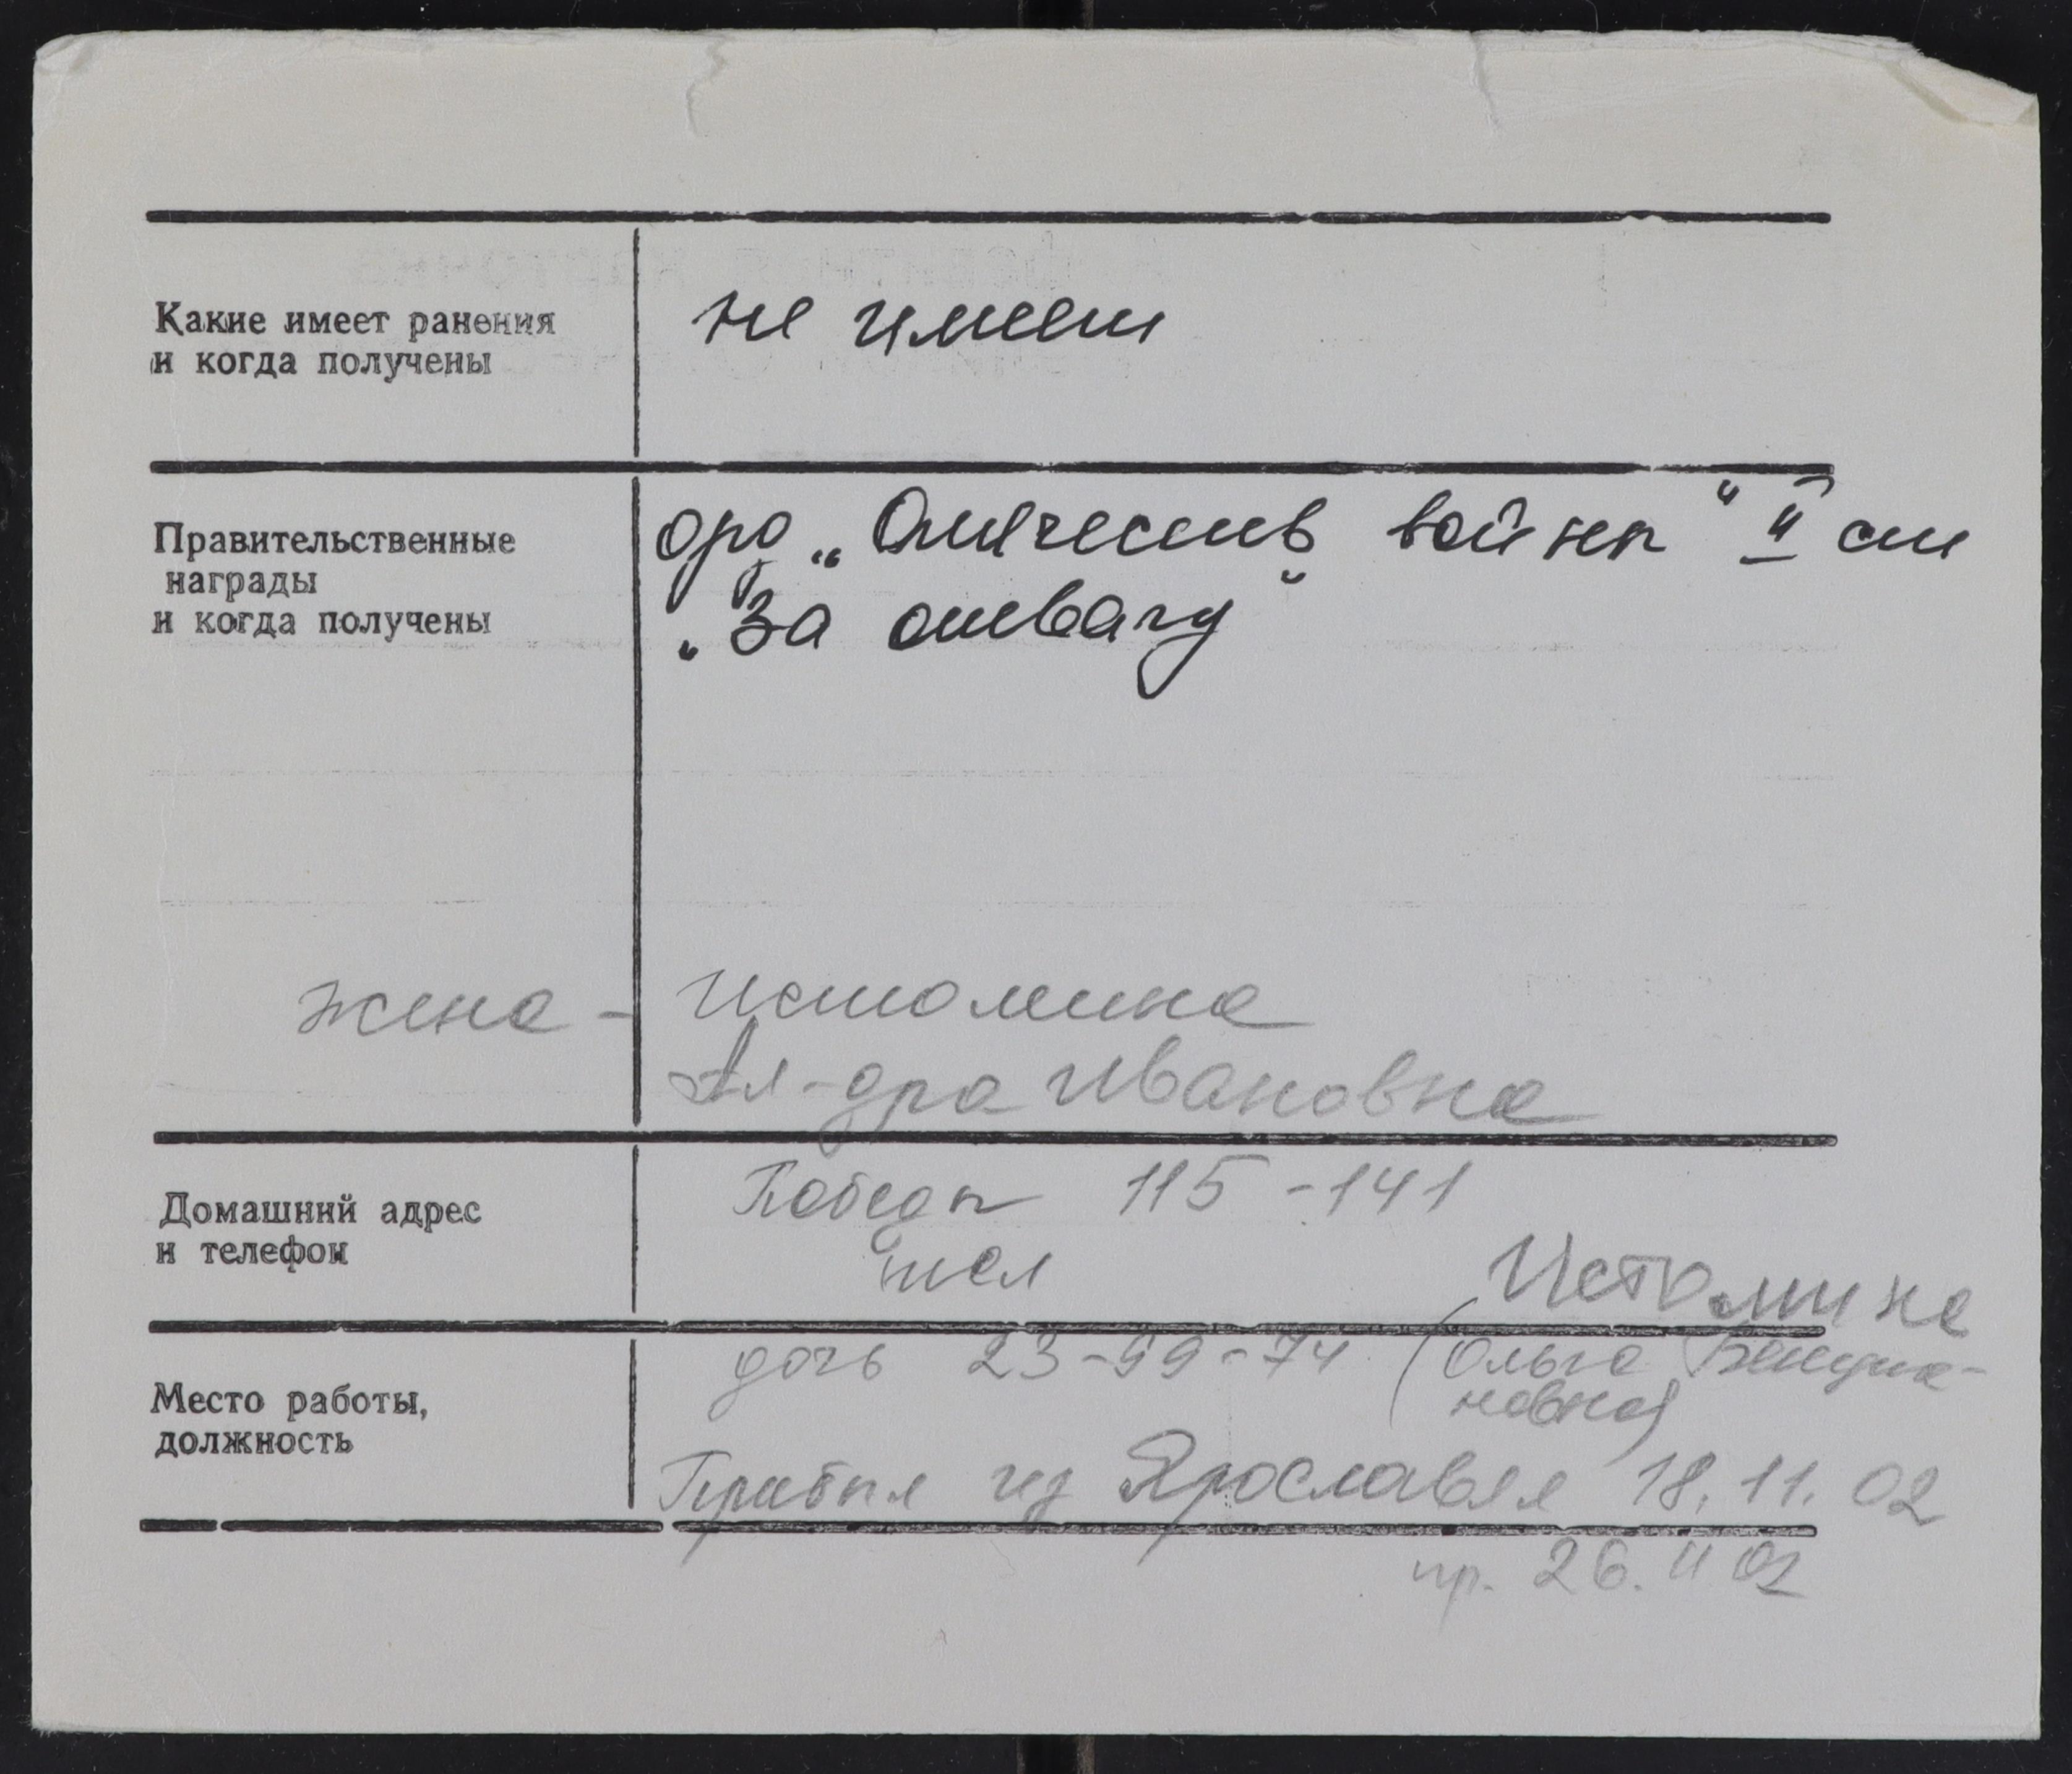 Какие имеет ранения
и когда получены
не имеет
Правительственные
награды
и когда получены
орд „Отечеств войны" II ст
„За отвагу"
жена - Истомина
Ал-дра Ивановна
Домашний адрес
и телефон
Победы 115 - 141
тел
Истомина
Место работы,
должность
дочь 23-99-74 (Ольга
новна)
Прибыл из Ярославля 18.11.02
пр. 26.II 02